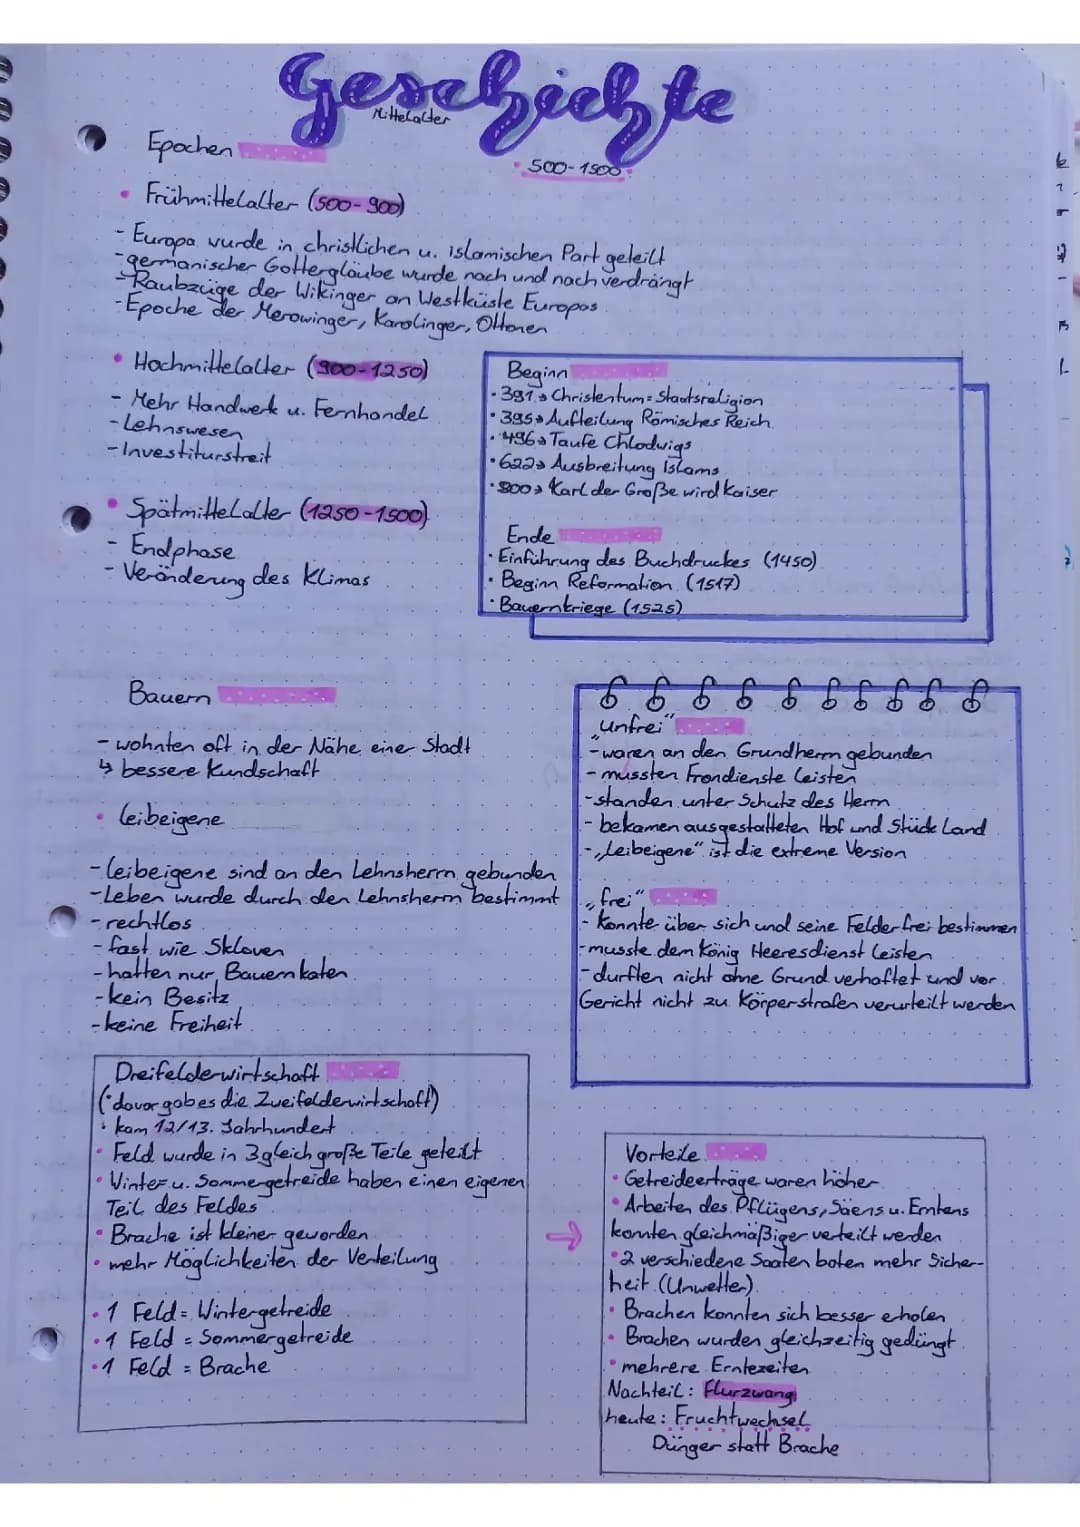 Geschichte
Mittelalter
500-1500
Epochen
• Frühmittelalter (500-900)
- Europa wurde in christlichen u. islamischen Part geteilt
- germanischer Gotterglaube wurde nach und nach verdrängt
- Raubzüge der Wikinger an Westküste Europas
- Epoche der Merowinger, Karolinger, Ottonen
• Hochmittelalter (900-1250)
- Mehr Handwerk u. Fernhandel
- Lehnswesen
- Investiturstreit
• Spätmittelalter (1250-1500)
- Endphase
- Veränderung des Klimas
Beginn
• 391→ Christentum = Staatsreligion
• 395→ Aufteilung Römisches Reich
• 496→ Taufe Chlodwigs
• 622→ Ausbreitung Islams
• 800→ Karl der Große wird Kaiser
Ende
• Einführung des Buchdruckes (1450)
• Beginn Reformation (1517)
• Bauernkriege (1525)
Bauern
- wohnten oft in der Nähe einer Stadt
↳ bessere Kundschaft
• Leibeigene
- Leibeigene sind an den Lehnsherrn gebunden
- Leben wurde durch den Lehnsherrn bestimmt
- rechtlos
- fast wie Sklaven
- hatten nur Bauernkaten
- kein Besitz
- keine Freiheit
„Unfrei"
- waren an den Grundherrn gebunden
- mussten Frondienste leisten
- standen unter Schutz des Herrn
- bekamen ausgestatteten Hof und Stück Land
- „Leibeigene" ist die extreme Version
„frei"
- Konnte über sich und seine Felder frei bestimmen
- musste dem König Heeresdienst leisten
- durften nicht ohne Grund verhaftet und vor
Gericht nicht zu Körperstrafen verurteilt werden
Dreifelderwirtschaft
(• davor gab es die Zweifelderwirtschaft)
• kam 12/13. Jahrhundert
• Feld wurde in 3 gleich große Teile geteilt
• Winter- u. Sommergetreide haben einen eigenen
Teil des Feldes
• Brache ist kleiner geworden
• mehr Möglichkeiten der Verteilung
• 1 Feld = Wintergetreide
• 1 Feld = Sommergetreide
• 1 Feld = Brache
→
Vorteile
• Getreideerträge waren höher
• Arbeiten des Pflügens, Säens u. Erntens
konnten gleichmäßiger verteilt werden
• 2 verschiedene Saaten boten mehr Sicher-
heit (Unwetter)
• Brachen konnten sich besser erholen
• Brachen wurden gleichzeitig gedüngt
• mehrere Erntezeiten
Nachteil: Flurzwang
heute: Fruchtwechsel
Dünger statt Brache